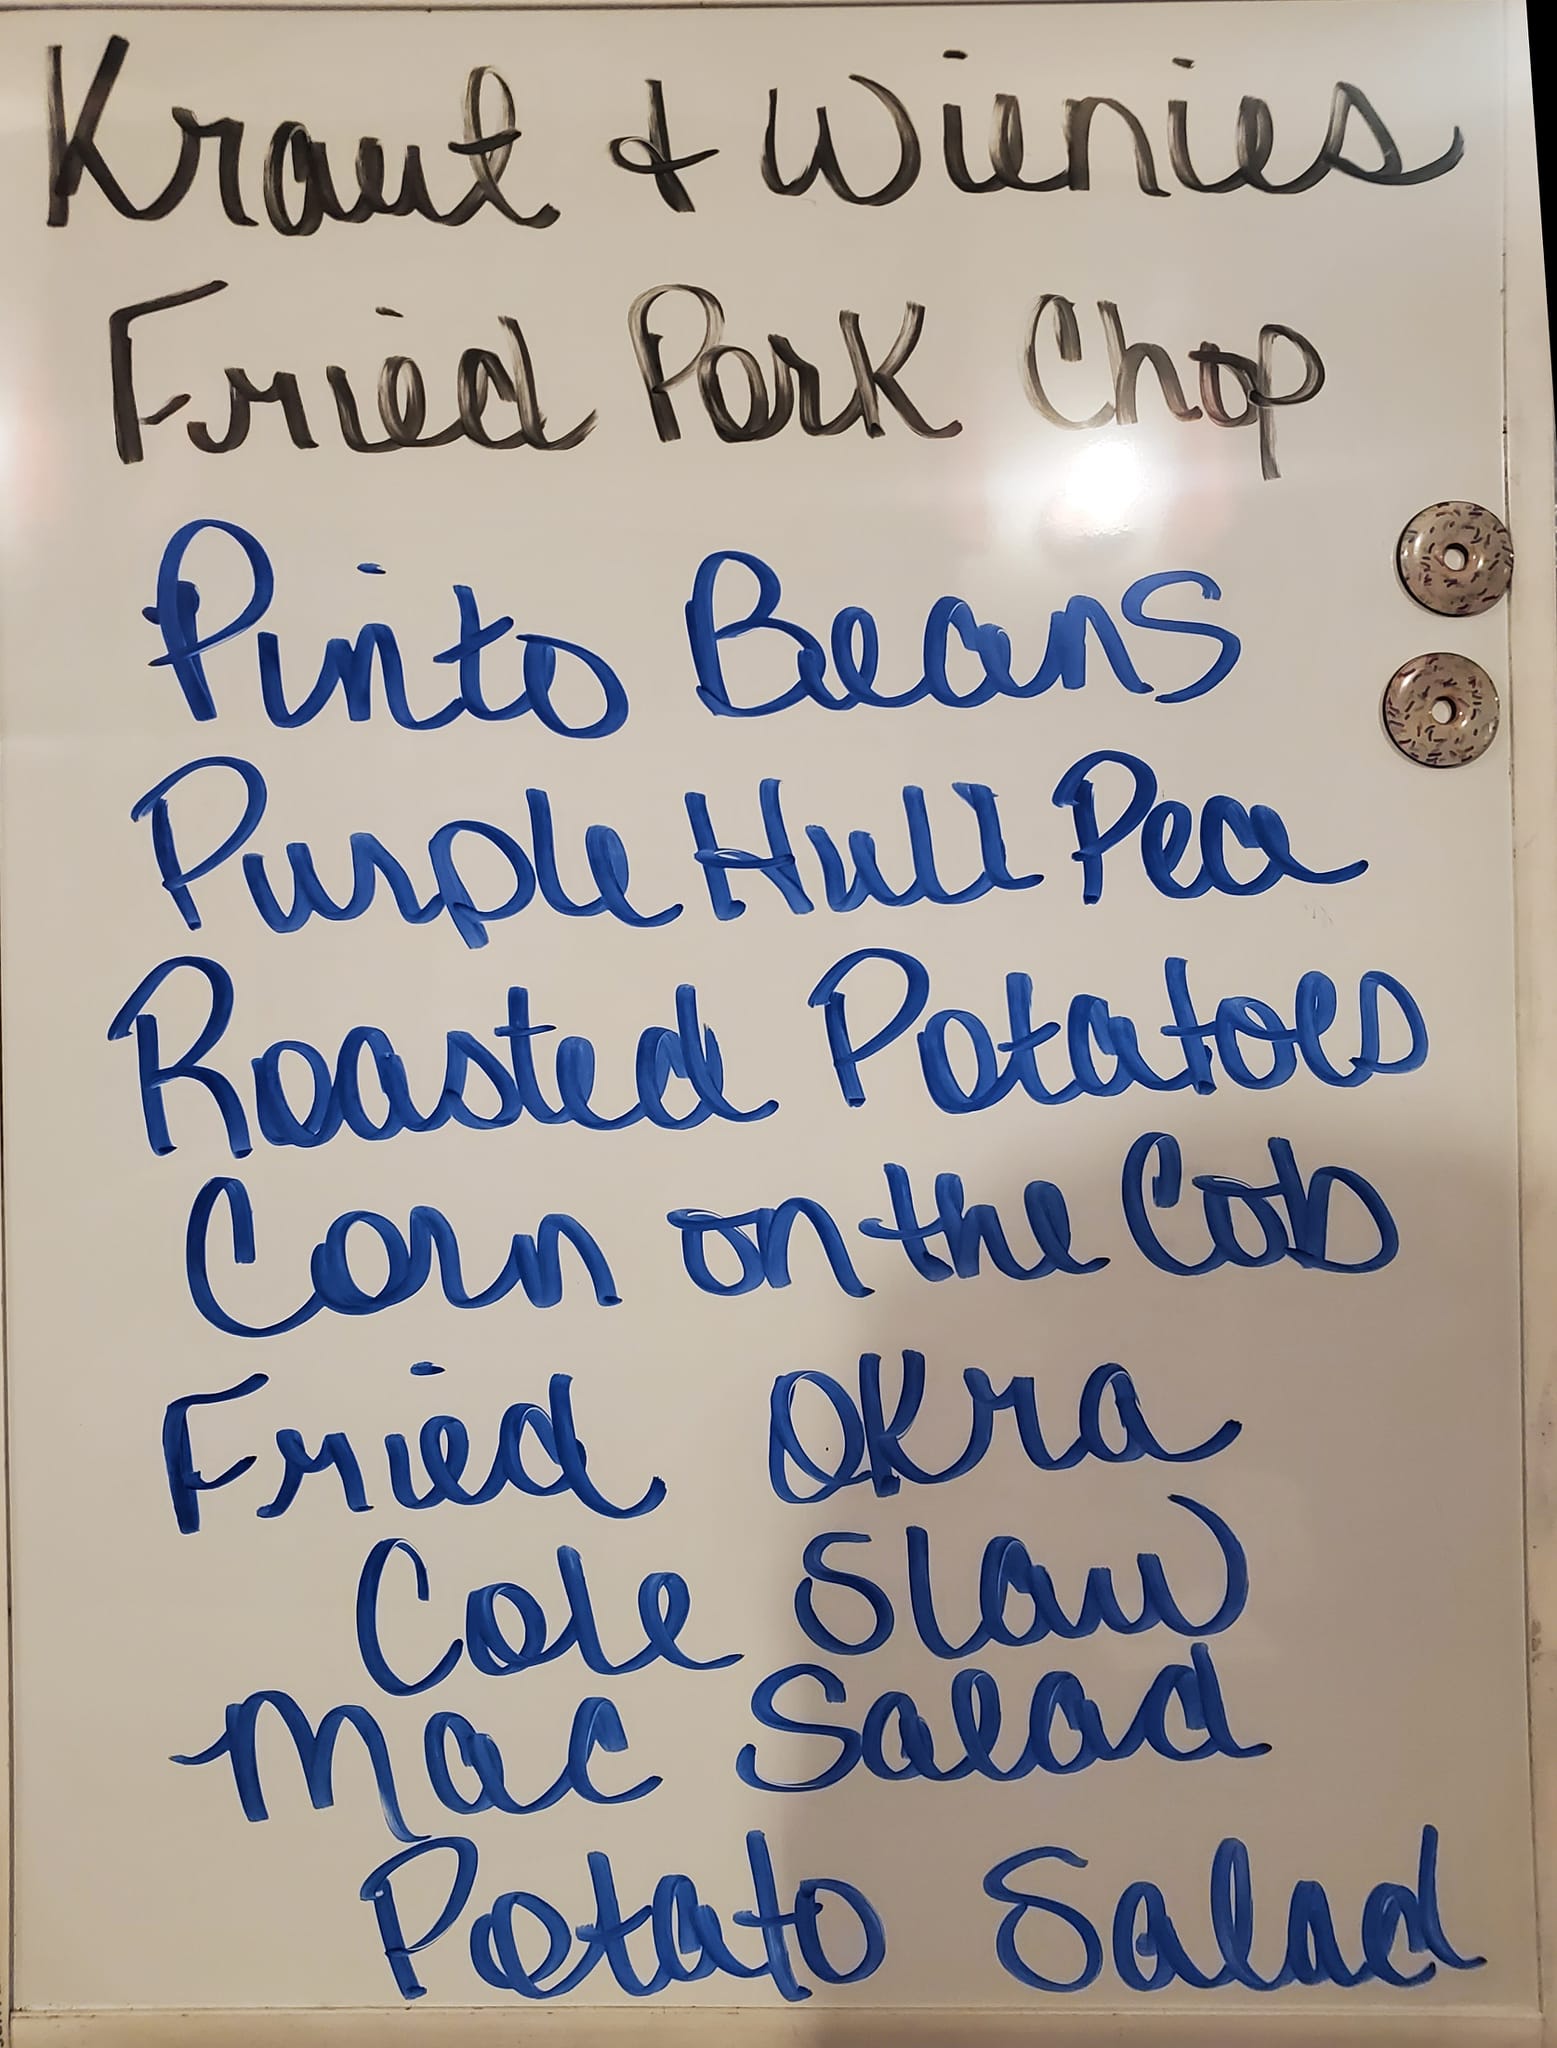 Kraut & Wienies
Fried Pork Chop
Pinto Beans
Purple Hull Pea
Roasted Potatoes
Corn on the Cob
Fried Okra
Cole Slaw
Mac Salad
Potato Salad